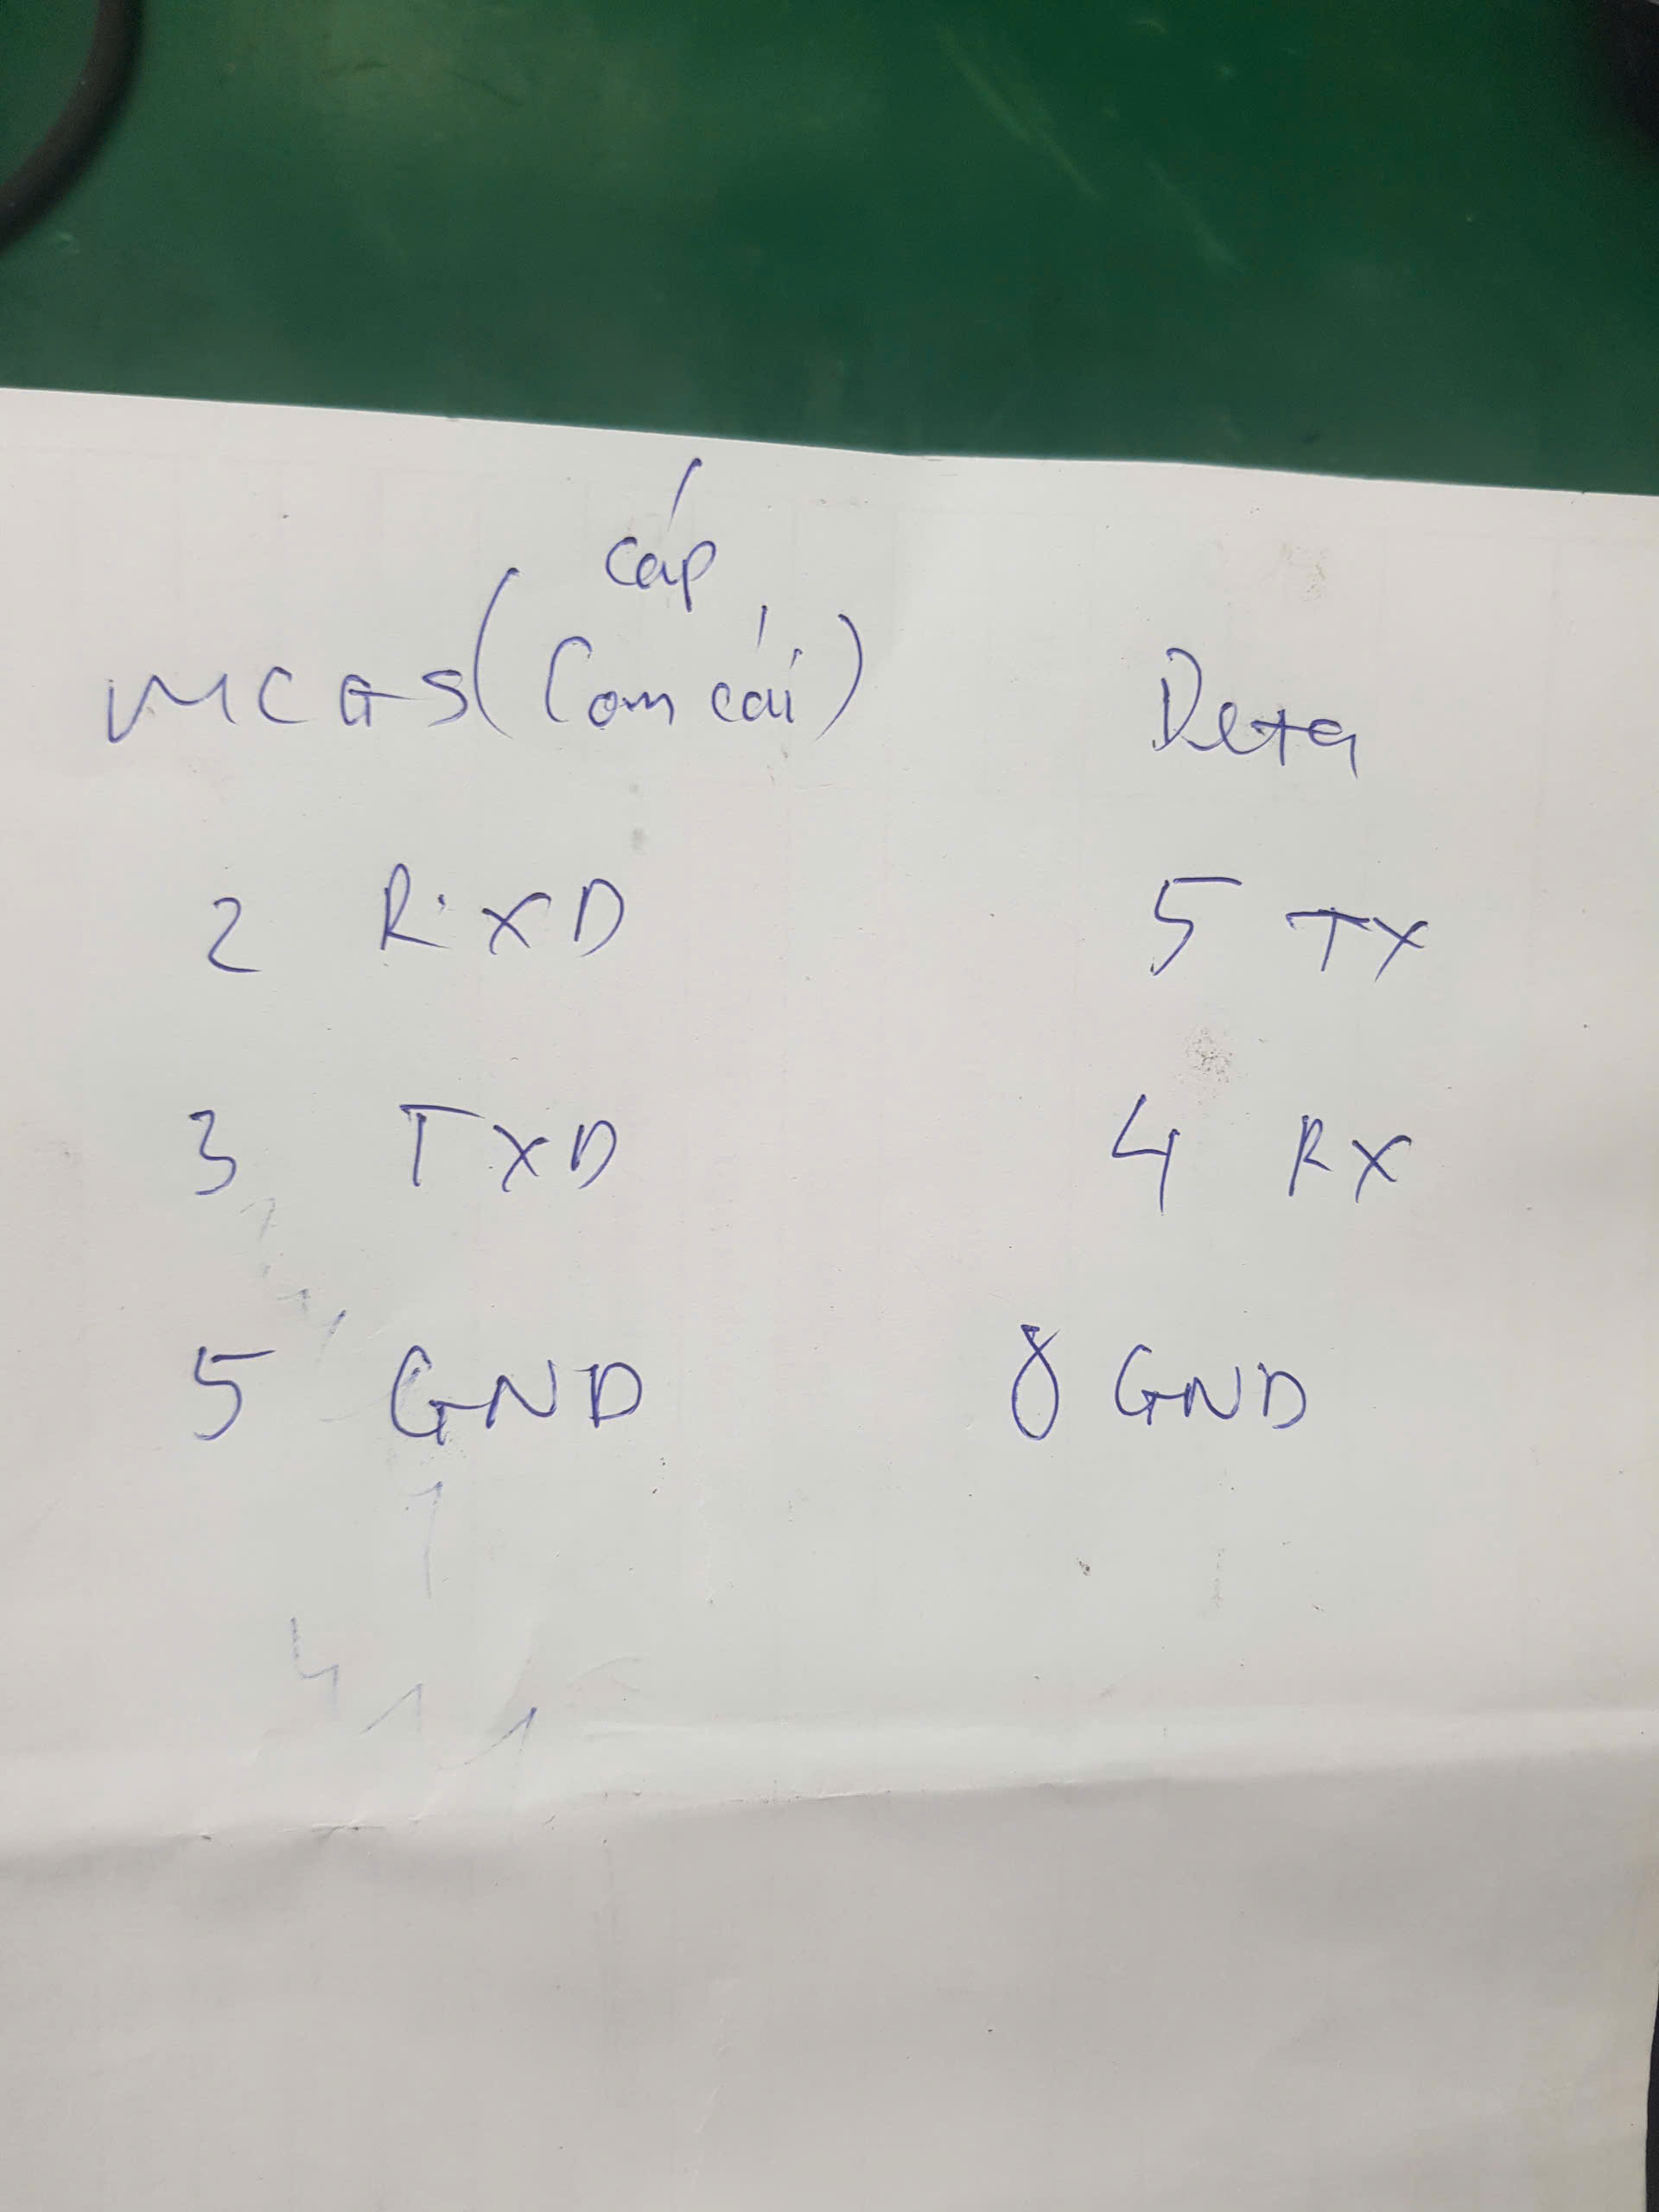 cáp
MCGS (Com cái) Deta
2 RXD 5 TX
3 TXD 4 RX
5 GND 8 GND